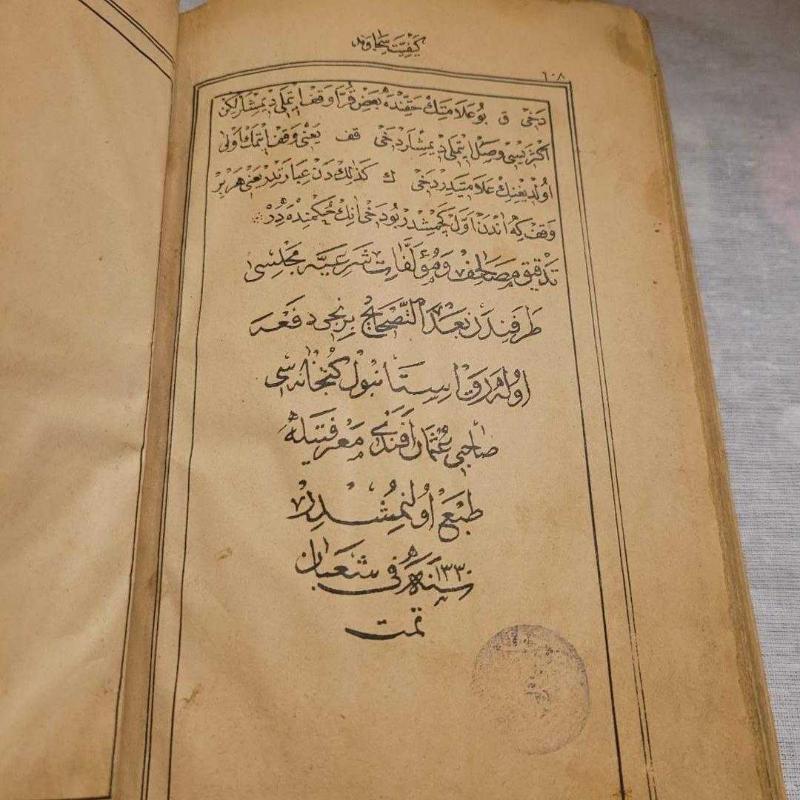 كيفيت سجاوند
٦٠٨
دخى ق بو علامتك حقنده بعض قرا وقف ايتملى ديمشلر لكن
اكثريسى وصل ايتملى ديمشلر دخى قف يعنى وقف ايتمك اولى
اولديغنك علامتيدر دخى ك كذلك دن عبارتدر يعنى هر بر
وقف كه اندن اول كچمشدر بو دخى انك حكمنده در
تدقيق مصاحف ومؤلفات شرعيه مجلسى
طرفندن بعد التصحيح برنجى دفعه
اوله رق استانبول كتبخانه سى
صاحبى عثمان افندى معرفتيله
طبع اولنمشدر
سنه ١٣٣٠ فى شعبان
تمت